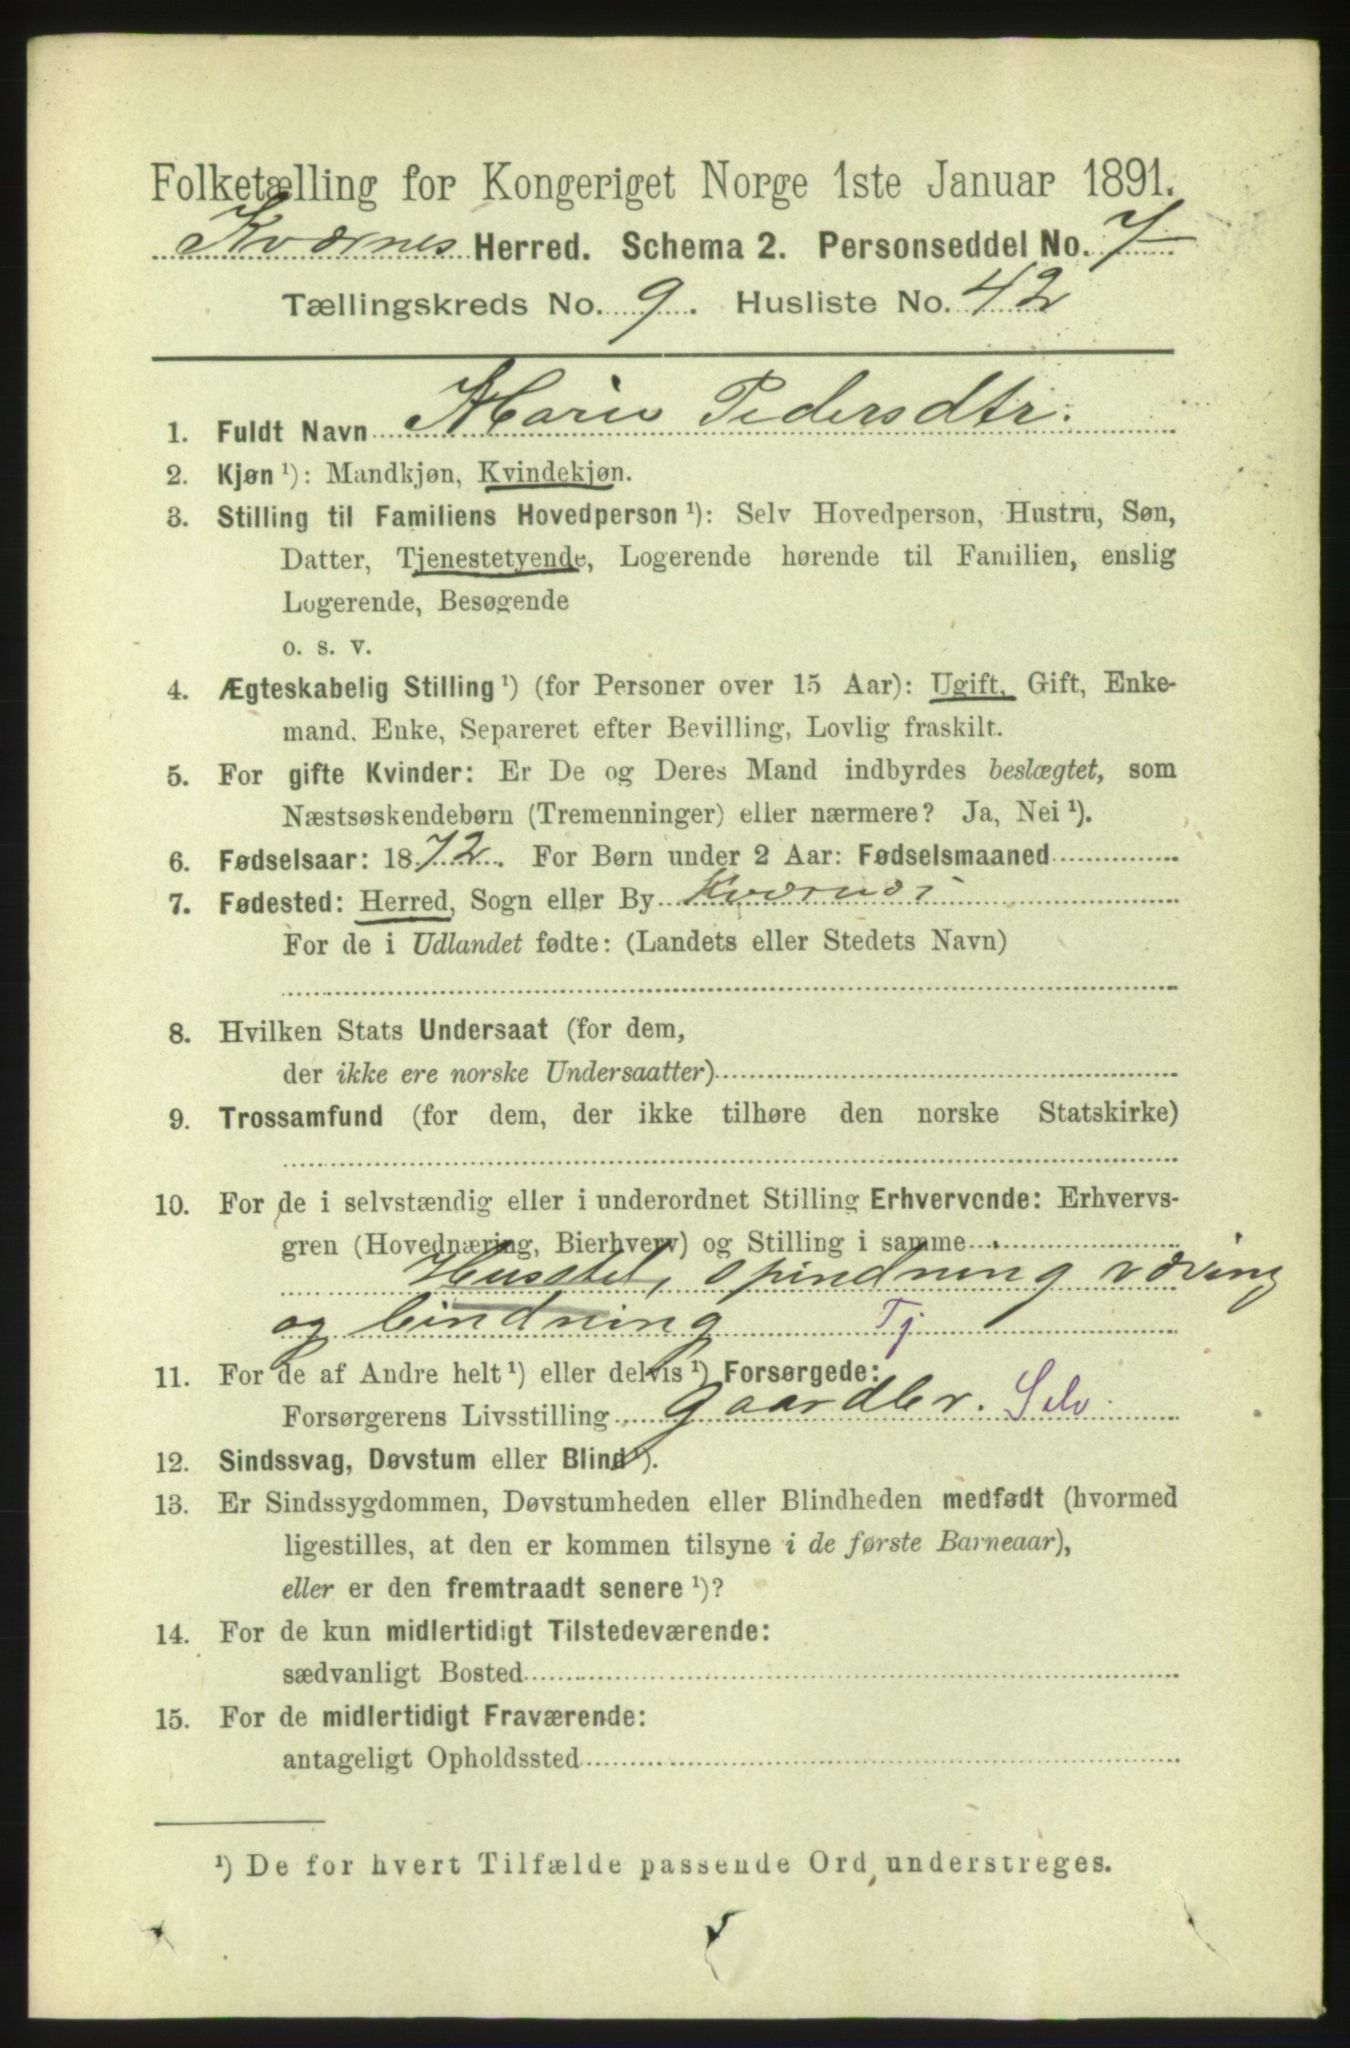 Folketælling for Kongeriget Norge 1ste Januar 1891.
Kværnes Herred. Schema 2. Personseddel No. 7
Tællingskreds No. 9. Husliste No. 42
1. Fuldt Navn Marie Pedersdtr.
2. Kjøn ¹): Mandkjøn, Kvindekjøn.
3. Stilling til Familiens Hovedperson ¹): Selv Hovedperson, Hustru, Søn,
Datter, Tjenestetyende, Logerende hørende til Familien, enslig
Logerende, Besøgende
o. s. v.
4. Ægteskabelig Stilling ¹) (for Personer over 15 Aar): Ugift, Gift, Enke-
mand. Enke, Separeret efter Bevilling, Lovlig fraskilt.
5. For gifte Kvinder: Er De og Deres Mand indbyrdes beslægtet, som
Næstsøskendebørn (Tremenninger) eller nærmere? Ja, Nei ¹).
6. Fødselsaar: 1872. For Børn under 2 Aar: Fødselsmaaned
7. Fødested: Herred, Sogn eller By Kværnes
For de i Udlandet fødte: (Landets eller Stedets Navn)
8. Hvilken Stats Undersaat (for dem,
der ikke ere norske Undersaatter)
9. Trossamfund (for dem, der ikke tilhøre den norske Statskirke)
10. For de i selvstændig eller i underordnet Stilling Erhvervende: Erhvervs-
gren (Hovednæring, Bierhverv) og Stilling i samme
Husstel, spindning væving
og bindning Tj
11. For de af Andre helt ¹) eller delvis ¹) Forsørgede:
Forsørgerens Livsstilling gaardbr. Selv
12. Sindssvag, Døvstum eller Blind ¹).
13. Er Sindssygdommen, Døvstumheden eller Blindheden medfødt (hvormed
ligestilles, at den er kommen tilsyne i de første Barneaar),
eller er den fremtraadt senere ¹)?
14. For de kun midlertidigt Tilstedeværende:
sædvanligt Bosted
15. For de midlertidigt Fraværende:
antageligt Opholdssted
¹) De for hvert Tilfælde passende Ord understreges.